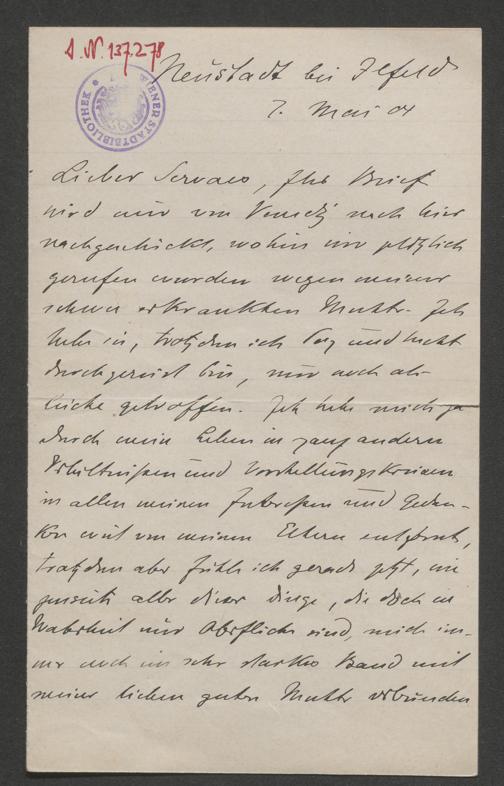 J. N. 137.278
WIENER STADTBIBLIOTHEK
Neustadt bei Ilfeld
7. Mai 04
Lieber Servaes, Ihr Brief
wird mir von Venedig nach hier
nachgeschickt, wohin wir plötzlich
gerufen wurden wegen meiner
schwer erkrankten Mutter. Ich
habe sie, trotzdem ich Tag und Nacht
durchgereist bin, nur noch als
Leiche getroffen. Ich habe mich ja
durch mein Leben in ganz andern
Verhältnißen und Vorstellungskreisen
in allen meinen Interessen und Gedan-
ken weit von meinen Eltern entfernt,
trotzdem aber fühle ich gerade jetzt, wie
jenseits aller dieser Dinge, die doch in
Wahrheit nur Oberfläche sind, mich im-
mer noch ein sehr starkes Band mit
meiner lieben guten Mutter verbunden